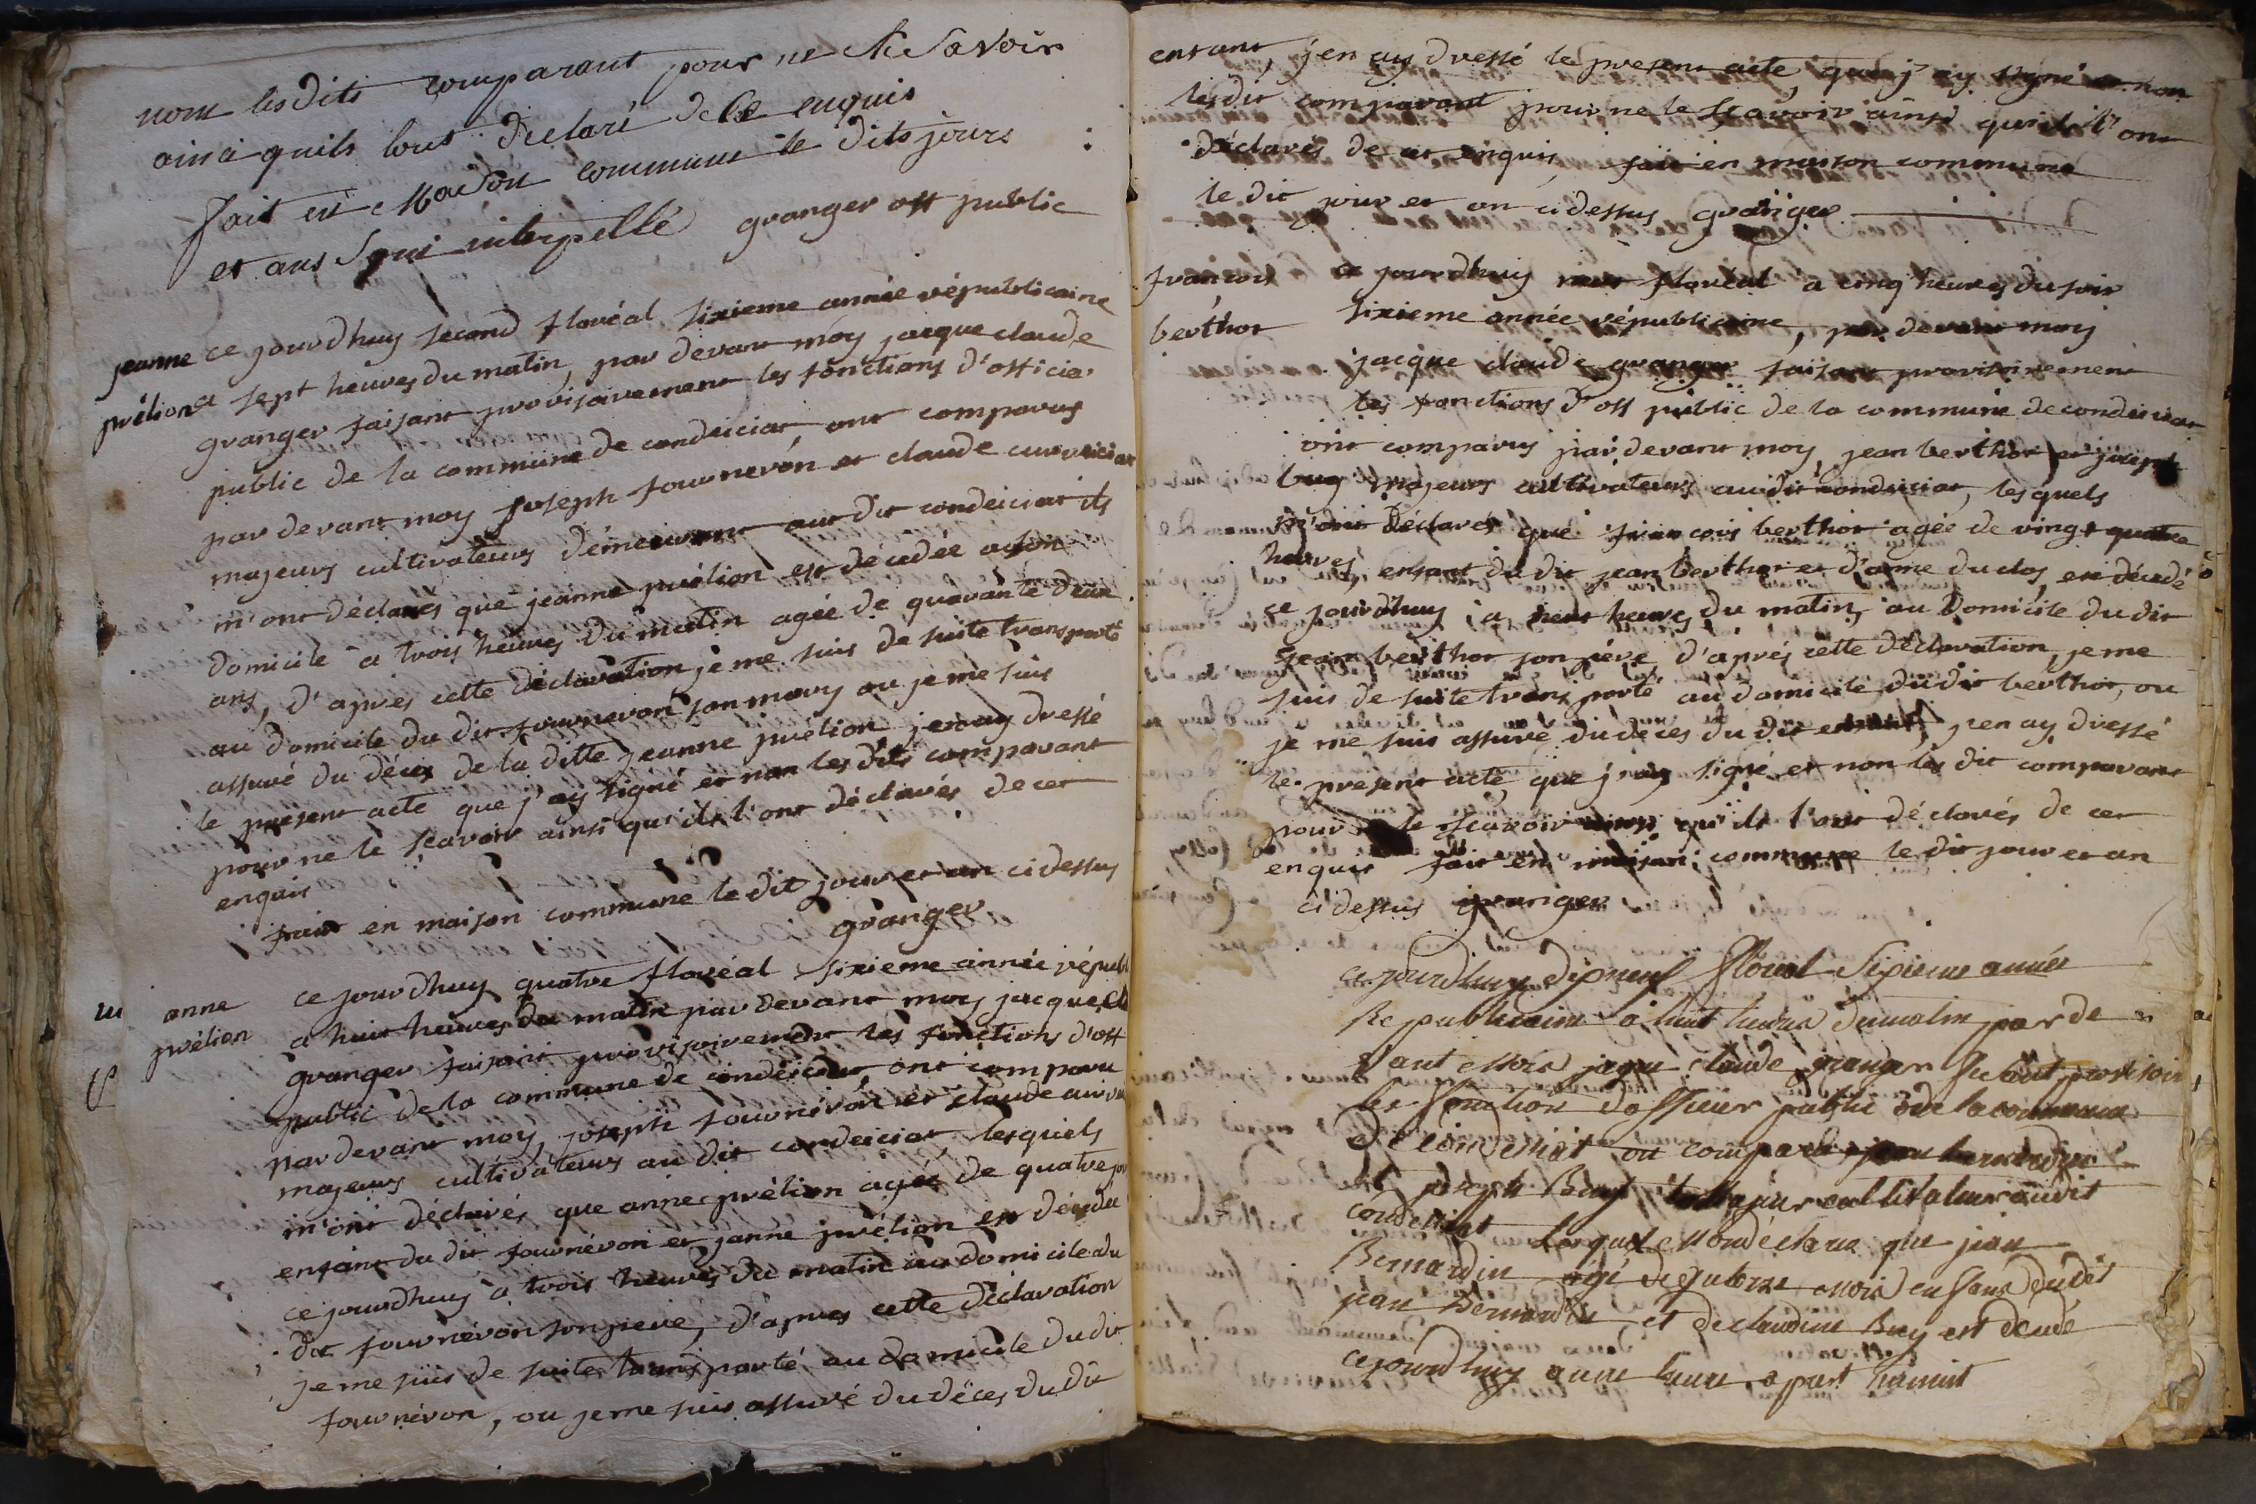 nom lesdits comparant pour ne le Savoir
ainci quils lont declaré de Ce enquis
fait en Maison commune le dits jours
et ans Sqni interpellé granger off public
jeanne ce jourdhuy second floréal sixieme année républicaine
prélion a sept heures du matin, par devant moy jacque claude
granger faisant provisoirement les fonctions d'officier
public de la commune de condeiciat, ont comparus
par devant moy joseph fournerón et claude
majeurs cultivateurs demeurant au dit condeiciat ils
m'ont déclarés que jeanne prélion est décedée a son
domicile a trois heures du matin agée de quarante deux
ans, d'apres cette déclaration je me suis de suite transporté
au domicile du dit fourneron son mary ou je me suis
assuré du déces de la ditte jeanne prélion jen ay dressé
le présent acte que j'ay signé et non les dits comparant
pour ne le scavoir ainsi qu'ils l'ont déclarés de cet
enquis
fait en maison commune le dit jour et an ci dessus
granger
anne ce jourdhuy quatre floréal sixieme année républ
prélion a huit heures du matin par devant moy jacque cl
granger faisant provisoirement les fonctions d'off
public de la commune de condeiciat, ont comparu
par devant moy, joseph fourneron et claude
majeurs cultivateurs au dit condeiciat, lesquels
m'ont déclarés que anne prélion agée de quatre jou
enfant du dit fournéron et janne prélion est décedee
ce jourdhuy a trois heures du matin au domicile du
dit fournéron son pere, d'apres cette déclaration
je me suis de suite transporté au domicile du dit
fournéron, ou je me suis assuré du déces du dit
enfant, j'en ay dressé le present acte, que j'ay signé et non
lesdit comparant pour ne le scavoir ainsi qu'ils l'ont
déclarés de cet enquis, fait en maison commune
le dit jour et an ci dessus granger
francois ce jourdhuy neuf floréal a cinq heures du soir
berthot sixieme année républicaine, par devant moy
jacque claude granger faisant provisoirement
les fonctions d'off public de la commune de condeiciat
ont comparus par devant moy jean berthot et joseph
buy majeurs cultivateurs au dit condeiciat, lesquels
m'ont déclarés que francois berthot agée de vingt quatre
heures, enfant du dit jean berthot et d'anne du clos, est décedé
ce jourdhuy a neuf heures du matin, au domicile du dit
jean berthot son pere, d'aprés cette déclaration, je me
suis de suite transporté au domicile du dit berthot, ou
je me suis assuré du déces du dit enfant, j'en ay dressé
le present acte, que j'ay signé et non les dit comparant
pour le scavoir ainsi qu'ils l'ont déclarés de cet
enquis fait en maison commune le dit jour et an
ci dessus granger
ce jourdhuy dixneuf floreal Sixieme année
Republicaine a huit heures du matin par de
vant moy jaque claude granger fesant provisoir
les fonction dofficier public de la commune
de condeissiat on comparu jean bernardin
et joseph Buy majeur cultivateur audit
condeissiat lesquels mon declarés que jean
Bernardin agé de quatorze mois enfans dudit
jean Bernardin et de claudine Buy est decedé
ce jourdhuy a une heure apret minuit